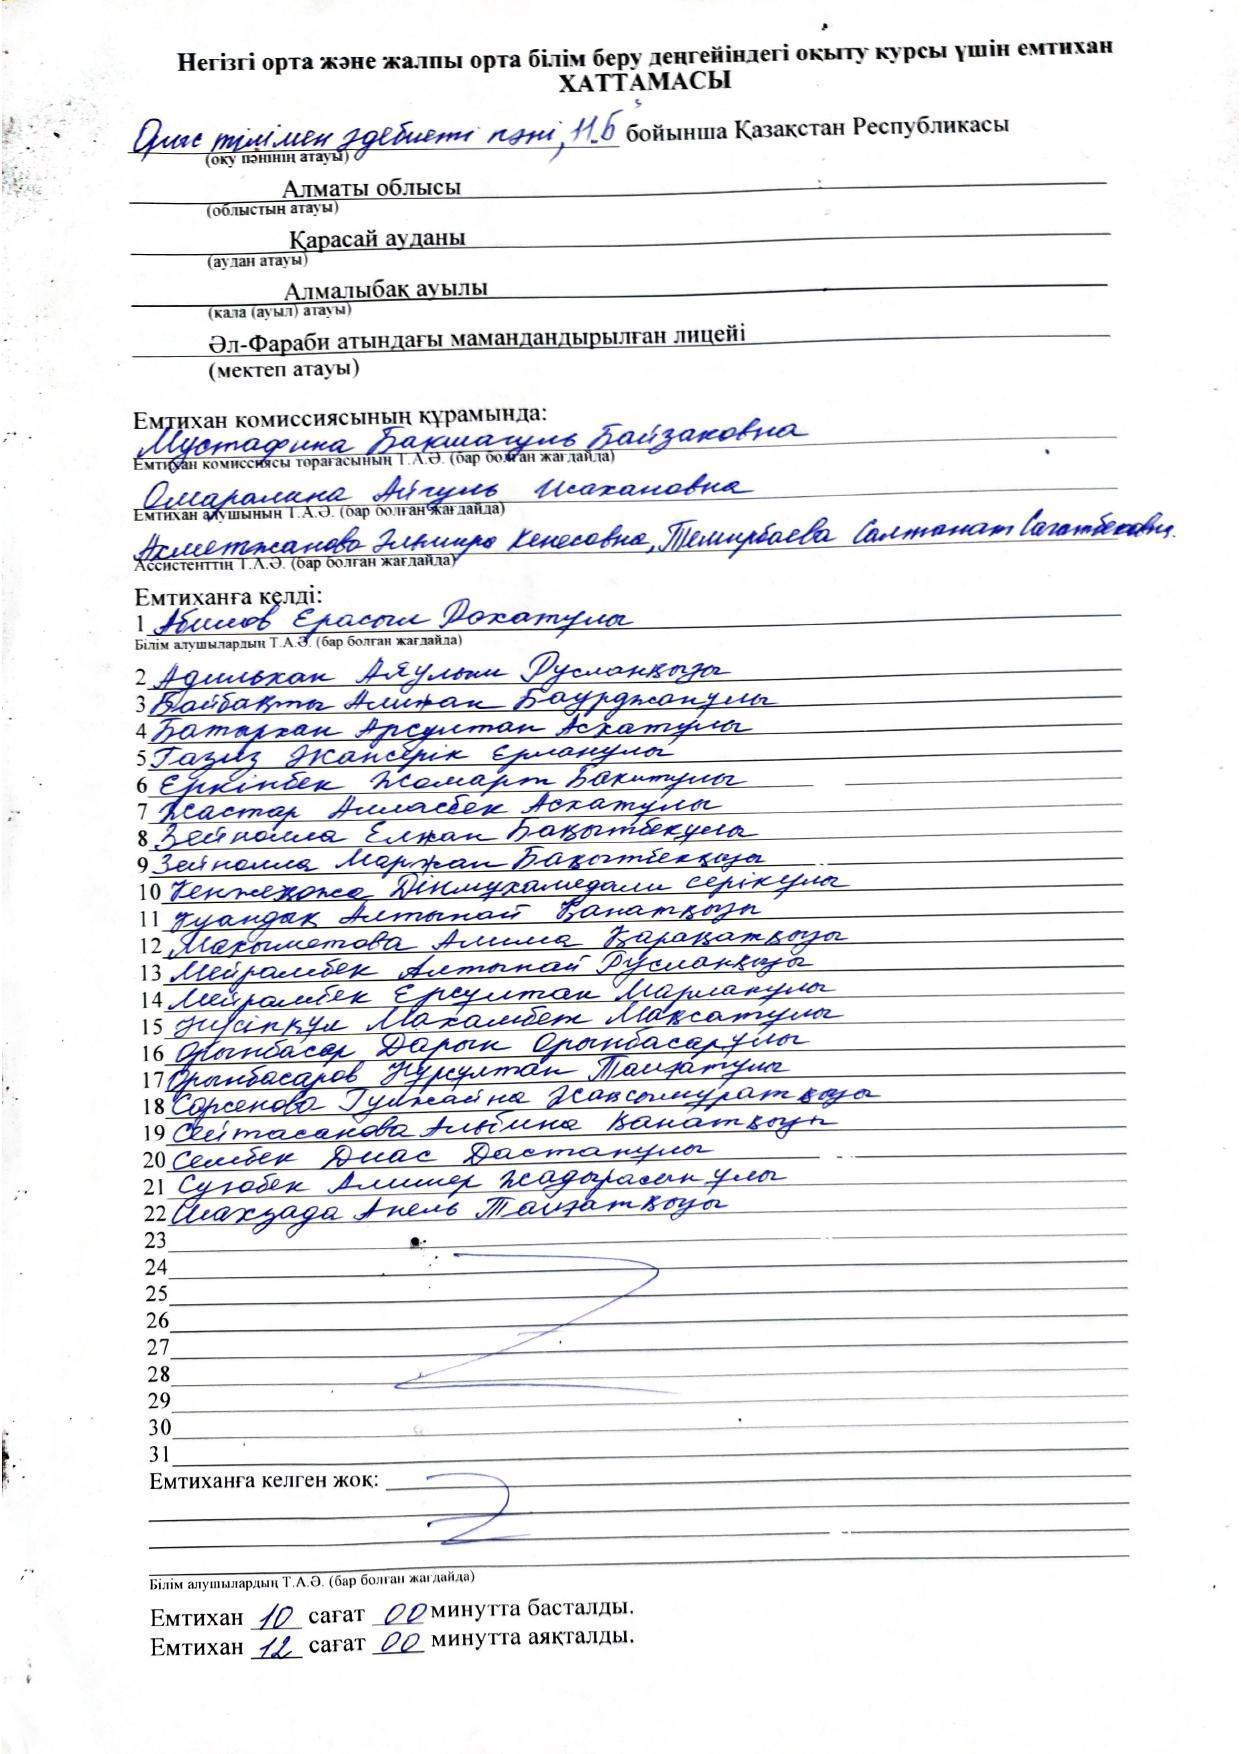 Негізгі орта және жалпы орта білім беру деңгейіндегі оқыту курсы үшін емтихан
ХАТТАМАСЫ
Орыс тілі мен әдебиеті пәні, 11.Б бойынша Қазақстан Республикасы
(оқу пәнінің атауы)
Алматы облысы
(облыстың атауы)
Қарасай ауданы
(аудан атауы)
Алмалыбақ ауылы
(қала (ауыл) атауы)
Әл-Фараби атындағы мамандандырылған лицейі
(мектеп атауы)
Емтихан комиссиясының құрамында:
Мустафина Бакшагуль Байзаковна
Емтихан комиссиясы төрағасының Т.А.Ә. (бар болған жағдайда)
Омаралина Айгуль Исахановна
Емтихан алушының Т.А.Ә. (бар болған жағдайда)
Ахметжанова Эльмира Кенесовна, Темирбаева Салтанат Сагатбековна.
Ассистенттің Т.А.Ә. (бар болған жағдайда)
Емтиханға келді:
1 Абилов Ерасыл Рахатулы
Білім алушылардың Т.А.Ә. (бар болған жағдайда)
2 Адильхан Аяулым Русланқызы
3 Байбақты Алижан Баурджанулы
4 Батырхан Арсултан Асхатулы
5 Газиз Жансерік Ерланулы
6 Еркінбек Жомарт Бакитулы
7 Жастар Алмасбек Асхатулы
8 Зейнолла Елжан Бақытбекулы
9 Зейнолла Маржан Бақытбекқызы
10 Кенжеқожа Дінмухамедали Серікулы
11 Қуандық Алтынай Қанатқызы
12 Махыметова Алима Қарақатқызы
13 Мейрамбек Алтынай Русланқызы
14 Мейрамбек Ерсултан Марланулы
15 Жүсіпқұл Махамбет Мақсатулы
16 Орынбасар Дарын Орынбасарулы
17 Орынбасаров Нурсултан Талғатулы
18 Сарсенова Гулжайна Жақсымуратқызы
19 Сейтасанова Альбина Қанатқызы
20 Сембек Диас Дастанулы
21 Суюбек Алишер Жадырасынулы
22 Шахзада Анель Талғатқызы
23
24
25
26
27
28
29
30
31
Емтиханға келген жоқ:
Білім алушылардың Т.А.Ә. (бар болған жағдайда)
Емтихан 10 сағат 00 минутта басталды.
Емтихан 12 сағат 00 минутта аяқталды.